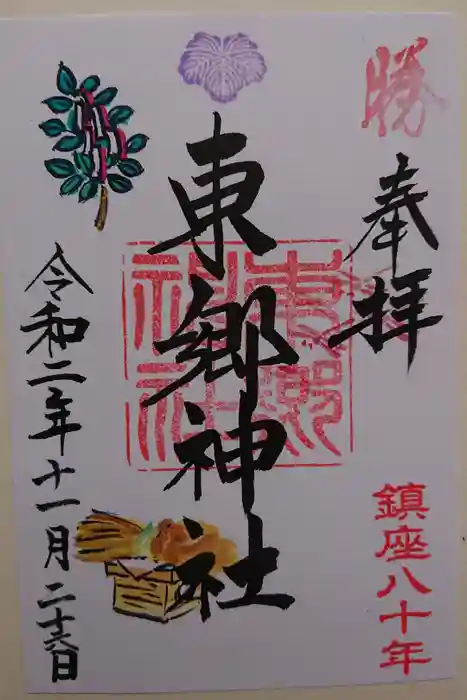 勝
奉拝
鎮座八十年
東郷神社
東郷神社
令和二年十一月二十六日